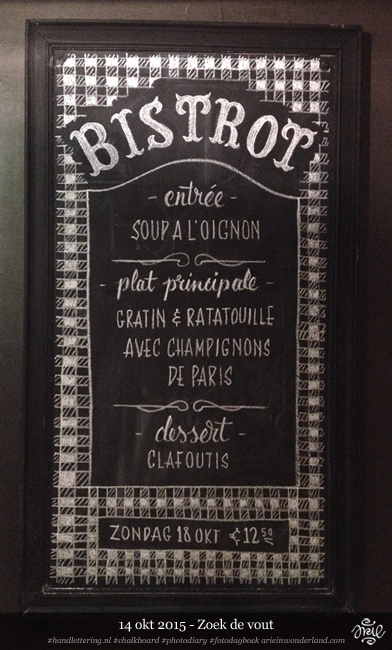 BISTROT
- entrée -
SOUP A L'OIGNON
- plat principale -
GRATIN & RATATOUILLE
AVEC CHAMPIGNONS
DE PARIS
- dessert -
CLAFOUTIS
ZONDAG 18 OKT € 12 50
14 okt 2015 - Zoek de vout
#handlettering.nl #chalkboard #photodiary #fotodagboek arieinwonderland.com